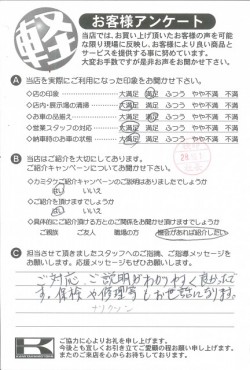 軽
お客様アンケート
当店では、お買い上げ頂いたお客様の声を可能
な限り現場に反映し、お客様により良い商品と
サービスを提供する事に努めています。
大変お手数ですが是非お声をお聞かせ下さい。
A 当店を実際にご利用になった印象をお聞かせ下さい。
◇店の印象 大満足 満足 ふつう やや不満 不満
◇店内・展示場の清掃 大満足 満足 ふつう やや不満 不満
◇お車の品揃え 大満足 満足 ふつう やや不満 不満
◇営業スタッフの対応 大満足 満足 ふつう やや不満 不満
◇納車時のお車の状態 大満足 満足 ふつう やや不満 不満
B 当店ではご紹介を大切にしております。
ご紹介キャンペーンについてお聞かせ下さい。
◇カミタケご紹介キャンペーンのご説明はありましたでしょうか
はい いいえ
◇ご紹介を頂けますでしょうか
はい いいえ
◇具体的にご紹介頂ける方とのご関係をお聞かせ頂けますでしょうか
ご親族 ご友人 職場の同僚 機会があれば紹介したい
C 担当させて頂きましたスタッフへのご指摘、ご指導メッセージを
お願いします。応援メッセージもぜひお願いします。
ご対応、ご説明がわかりやすく良かったで
す。保険や修理等もお世話になります。
K
ご協力に心よりお礼を申し上げます。
今後とも宜しくお引き立てご愛顧の程お願い申し上げます。
またのご来店を心からお待ちしております。